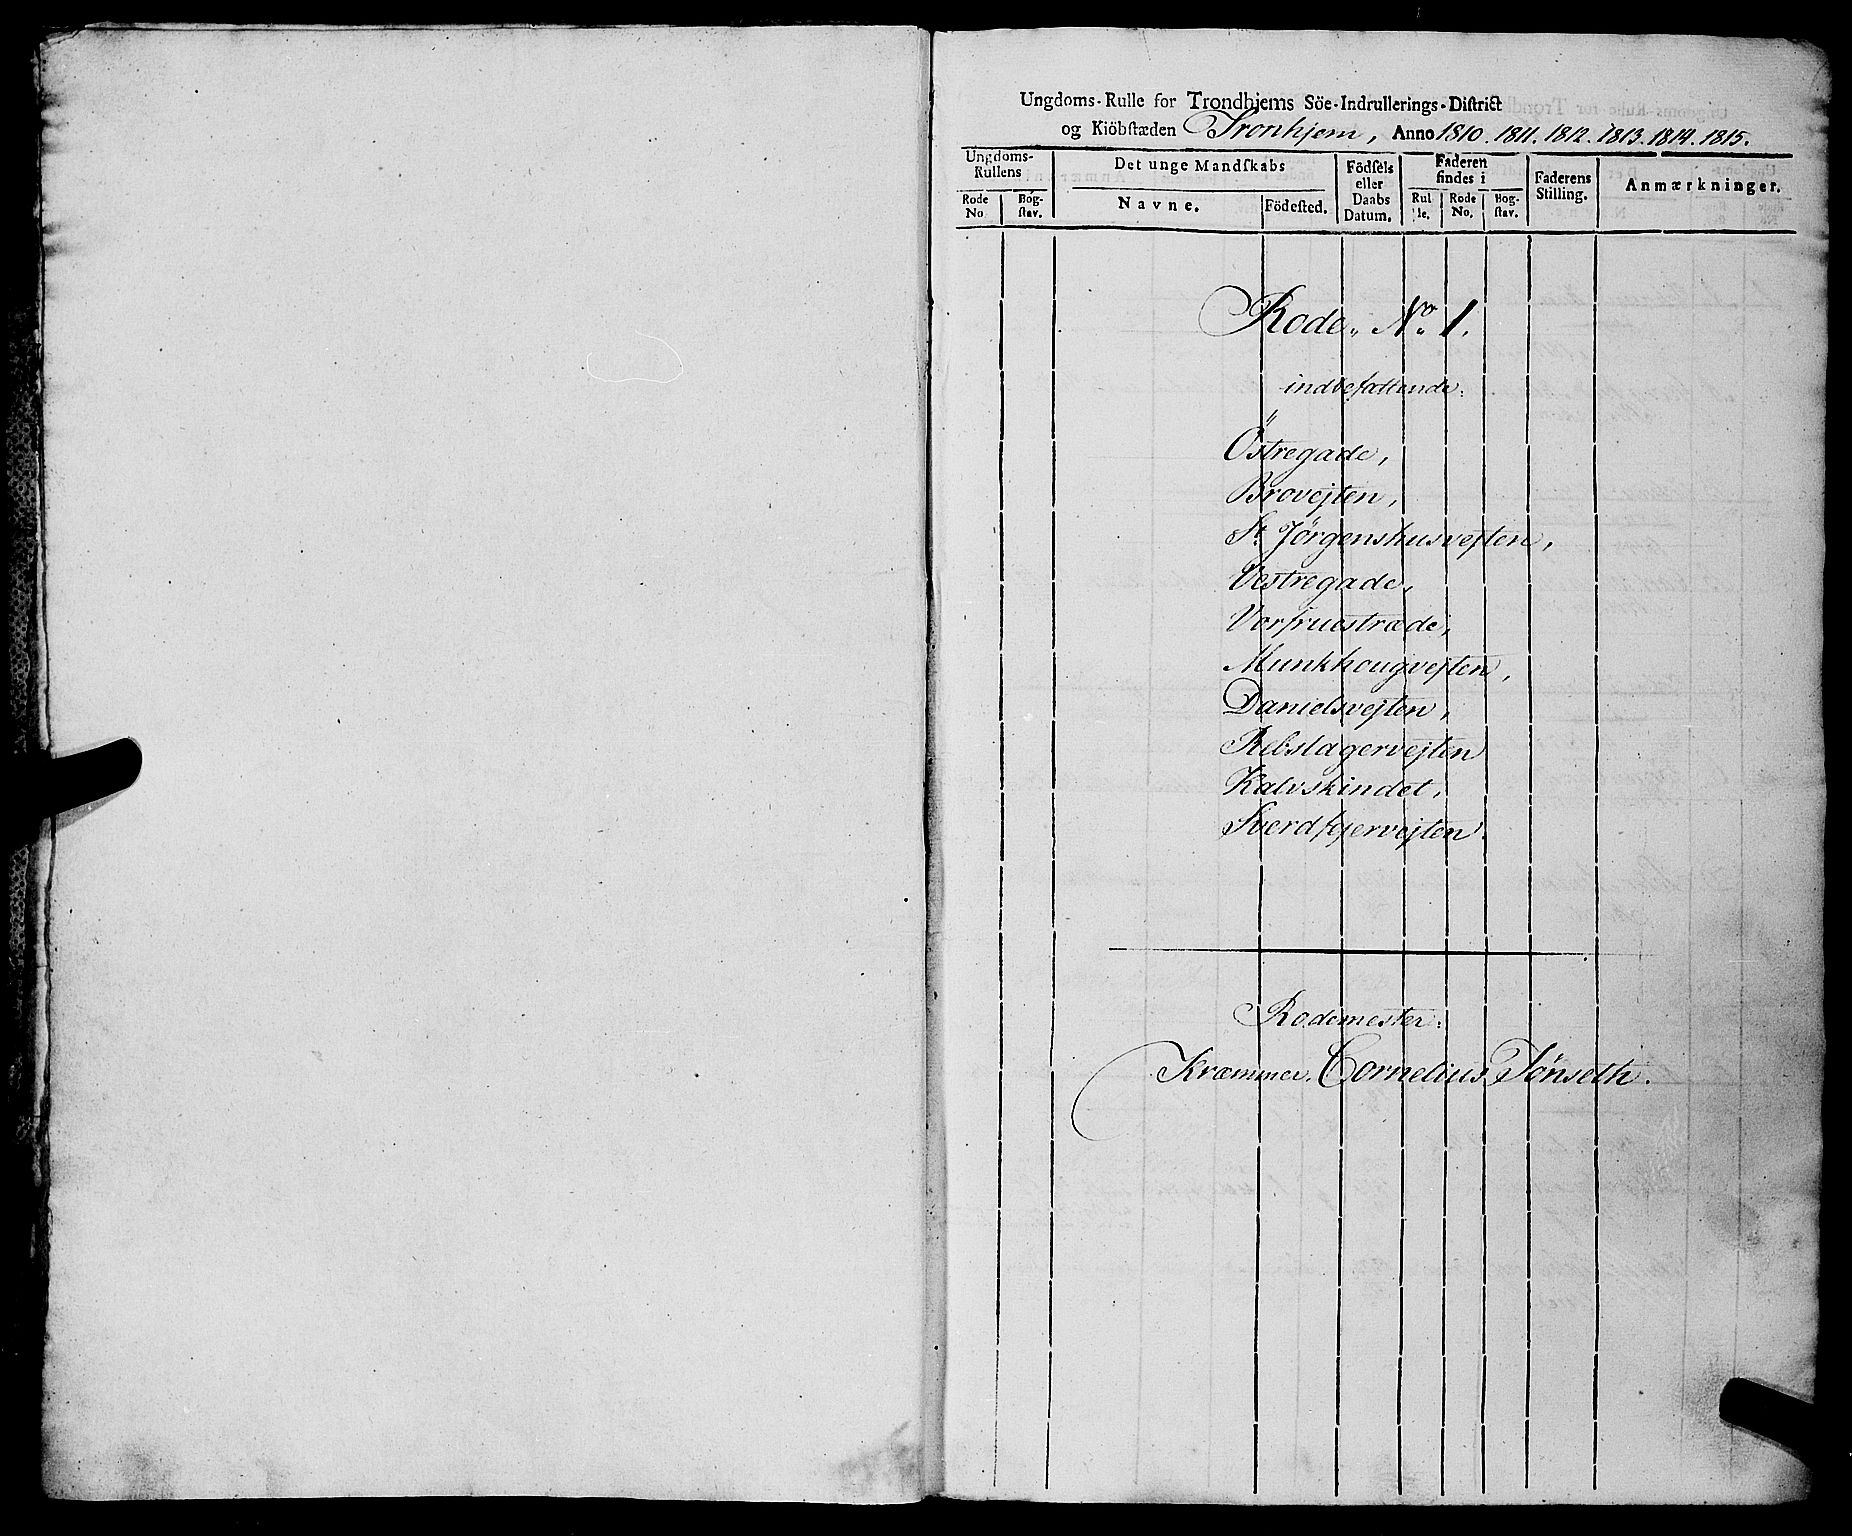 Ungdoms-Rulle for Trondhjems Söe-Indrullerings-District
og Kiöbstæden Tronhjem, Anno 1810. 1811. 1812. 1813. 1814. 1815.
Ungdoms-Rullens
Rode No
Bog-stav.
Det unge Mandskabs
Navne.
Födested.
Födsels eller Daabs Datum.
Faderen findes i
Rulle.
Rode No.
Bog-stav.
Faderens Stilling.
Anmærkninger.
Rode, No. 1.
indbefattende:
Östregade,
Brovejten,
St. Jörgenshusvejten,
Vestregade,
Vorfruestræde,
Munkhougvejten,
Danielsvejten,
Rebslagervejten
Kalvskindet,
Sverdfejervejten.
Rodemester:
Kræmmer. Cornelius Tönseth.